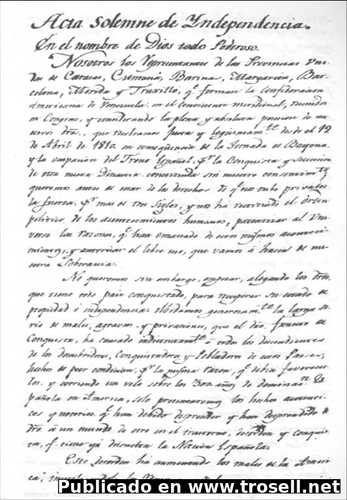 Acta Solemne de Yndependencia.
En el nombre de Dios todo Poderoso.
Nosotros los Representantes de las Provincias Uni-
das de Caracas, Cumaná, Barinas, Margarita, Bar-
celona, Mérida y Truxillo, q.e forman la confederación
Americana de Venezuela en el continente meridional, reunidos
en Congreso, y considerando la plena y absoluta posesion de nu-
estros dros. que recobramos justa y legitimam.te desde el 19
de Abril de 1810. en consequencia de la Jornada de Bayona
y la ocupacion del Trono Español, p.r la Conquista y sucesion
de otra nueva Dinastia
queremos antes de usar de los derechos de q.e nos tubo privados
la fuerza, p.r mas de tres siglos, y nos ha restituido el orden
político de los acontecimientos humanos, patentizar al Uni-
verso las razones, q.e han emanado de estos mismos aconteci-
mientos, y autorizan el libre uso, que vamos á hacer de nu-
estra Soberania.
No queremos sin embargo, empezar, alegando los dros.
que tiene todo pais conquistado, para recuperar su estado de
propiedad é independencia: olvidamos generosam.te la larga se-
rie de males, agravios y privaciones, que el dro. funesto de
Conquista, ha causado indistintam.te a todos los descendientes
de los descubridores, Conquistadores y Pobladores de estos Paises,
hechos de peor condicion, p.r la misma razon, q.e debia favorecer-
los: y corriendo un velo sobre los 300 años de dominac.n Es-
pañola en America, solo presentaremos los hechos autenti-
cos y notorios, q.e han debido desprender y han desprendido de
dro. á un mundo de otro en el trastorno, desorden y conquis-
ta, q.e tiene ya disuelta la Nacion Española.
Este desorden ha aumentado los males de la Ameri-
ca,
Publicado en www.trosell.net